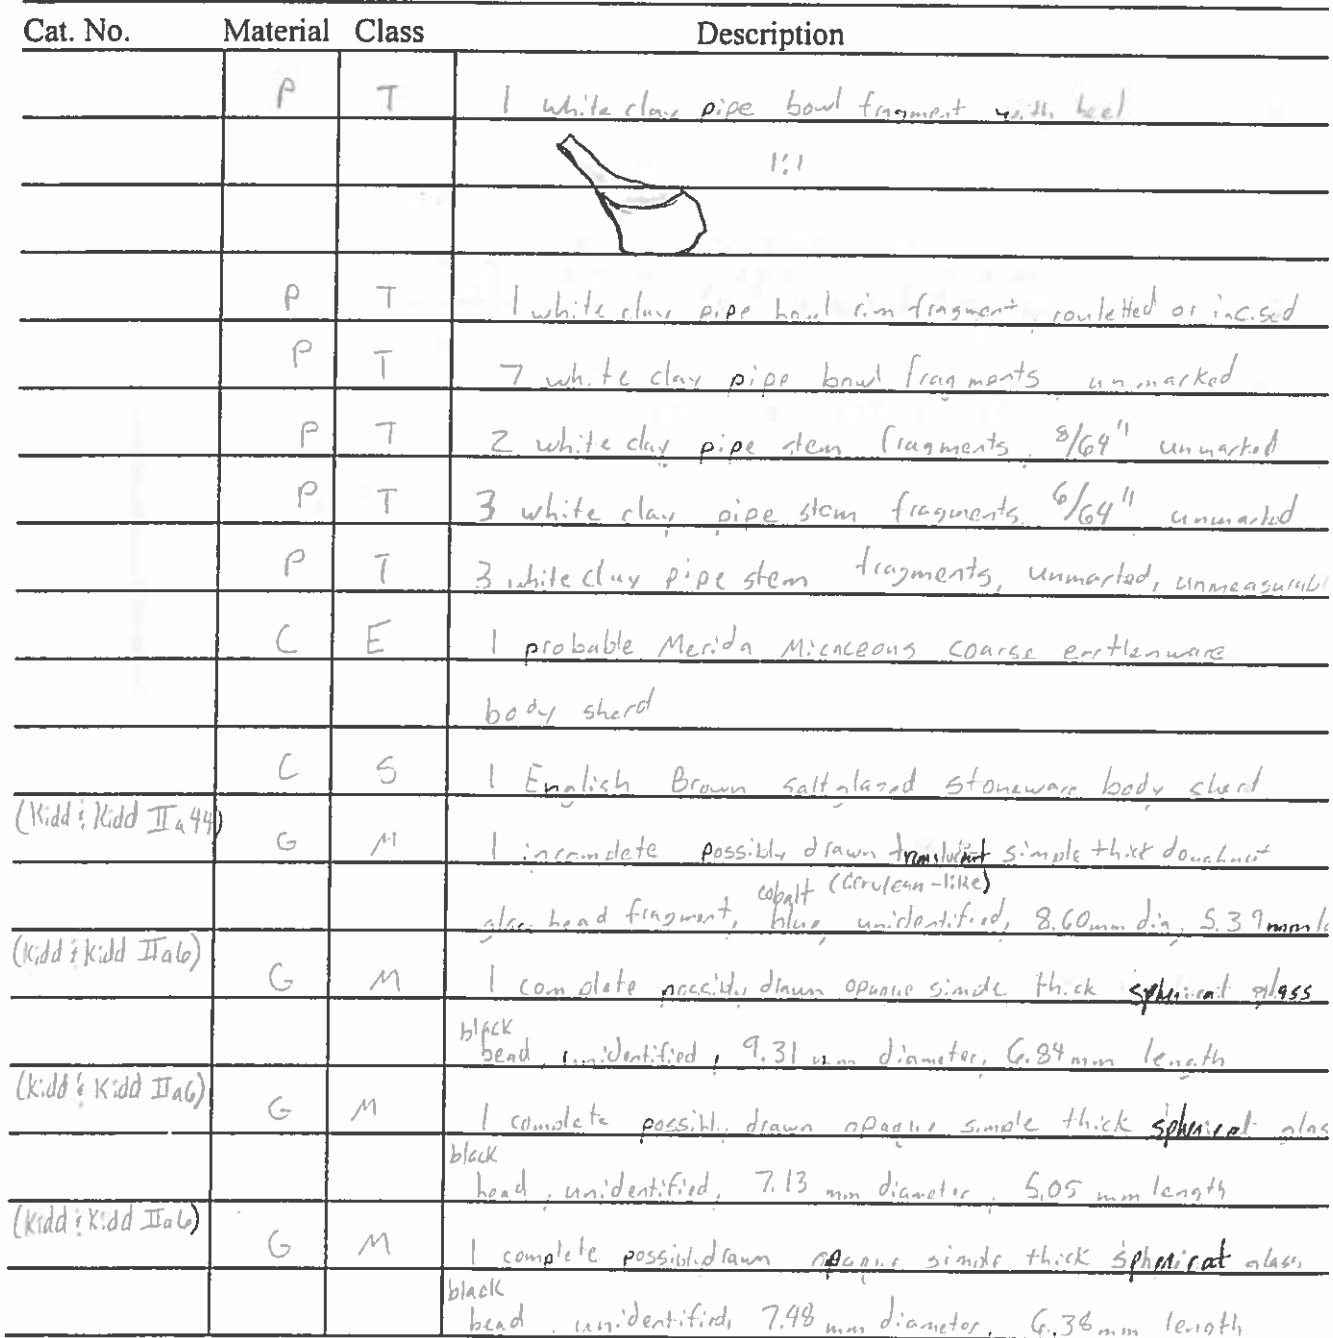 Cat. No. Material Class Description
P T 1 white clay pipe bowl fragment with heel
1:1
P T 1 white clay pipe bowl rim fragment rouletted or incised
P T 7 white clay pipe bowl fragments, unmarked
P T 2 white clay pipe stem fragments, 8/64" unmarked
P T 3 white clay pipe stem fragments, 6/64" unmarked
P T 3 white clay pipe stem fragments, unmarked, unmeasurabl
C E 1 probable Merida Micaceous coarse earthenware
body sherd
C S 1 English Brown saltglazed stoneware body sherd
(Kidd & Kidd IIa44) G M 1 incomplete possibly drawn translucent simple thick doughnut
cobalt (Cerulean-like)
glass bead fragment, blue, unidentified, 8.60mm dia, 5.39mm l
(Kidd & Kidd IIa6) G M 1 complete possibly drawn opaque simple thick spherical glass
black
bead, unidentified, 9.31 mm diameter, 6.84 mm length
(Kidd & Kidd IIa6) G M 1 complete possibly drawn opaque simple thick spherical glas
black
bead, unidentified, 7.13 mm diameter, 5.05 mm length
(Kidd & Kidd IIa6) G M 1 complete possibly drawn opaque simple thick spherical glass
black
bead, unidentified, 7.48 mm diameter, 6.38 mm length